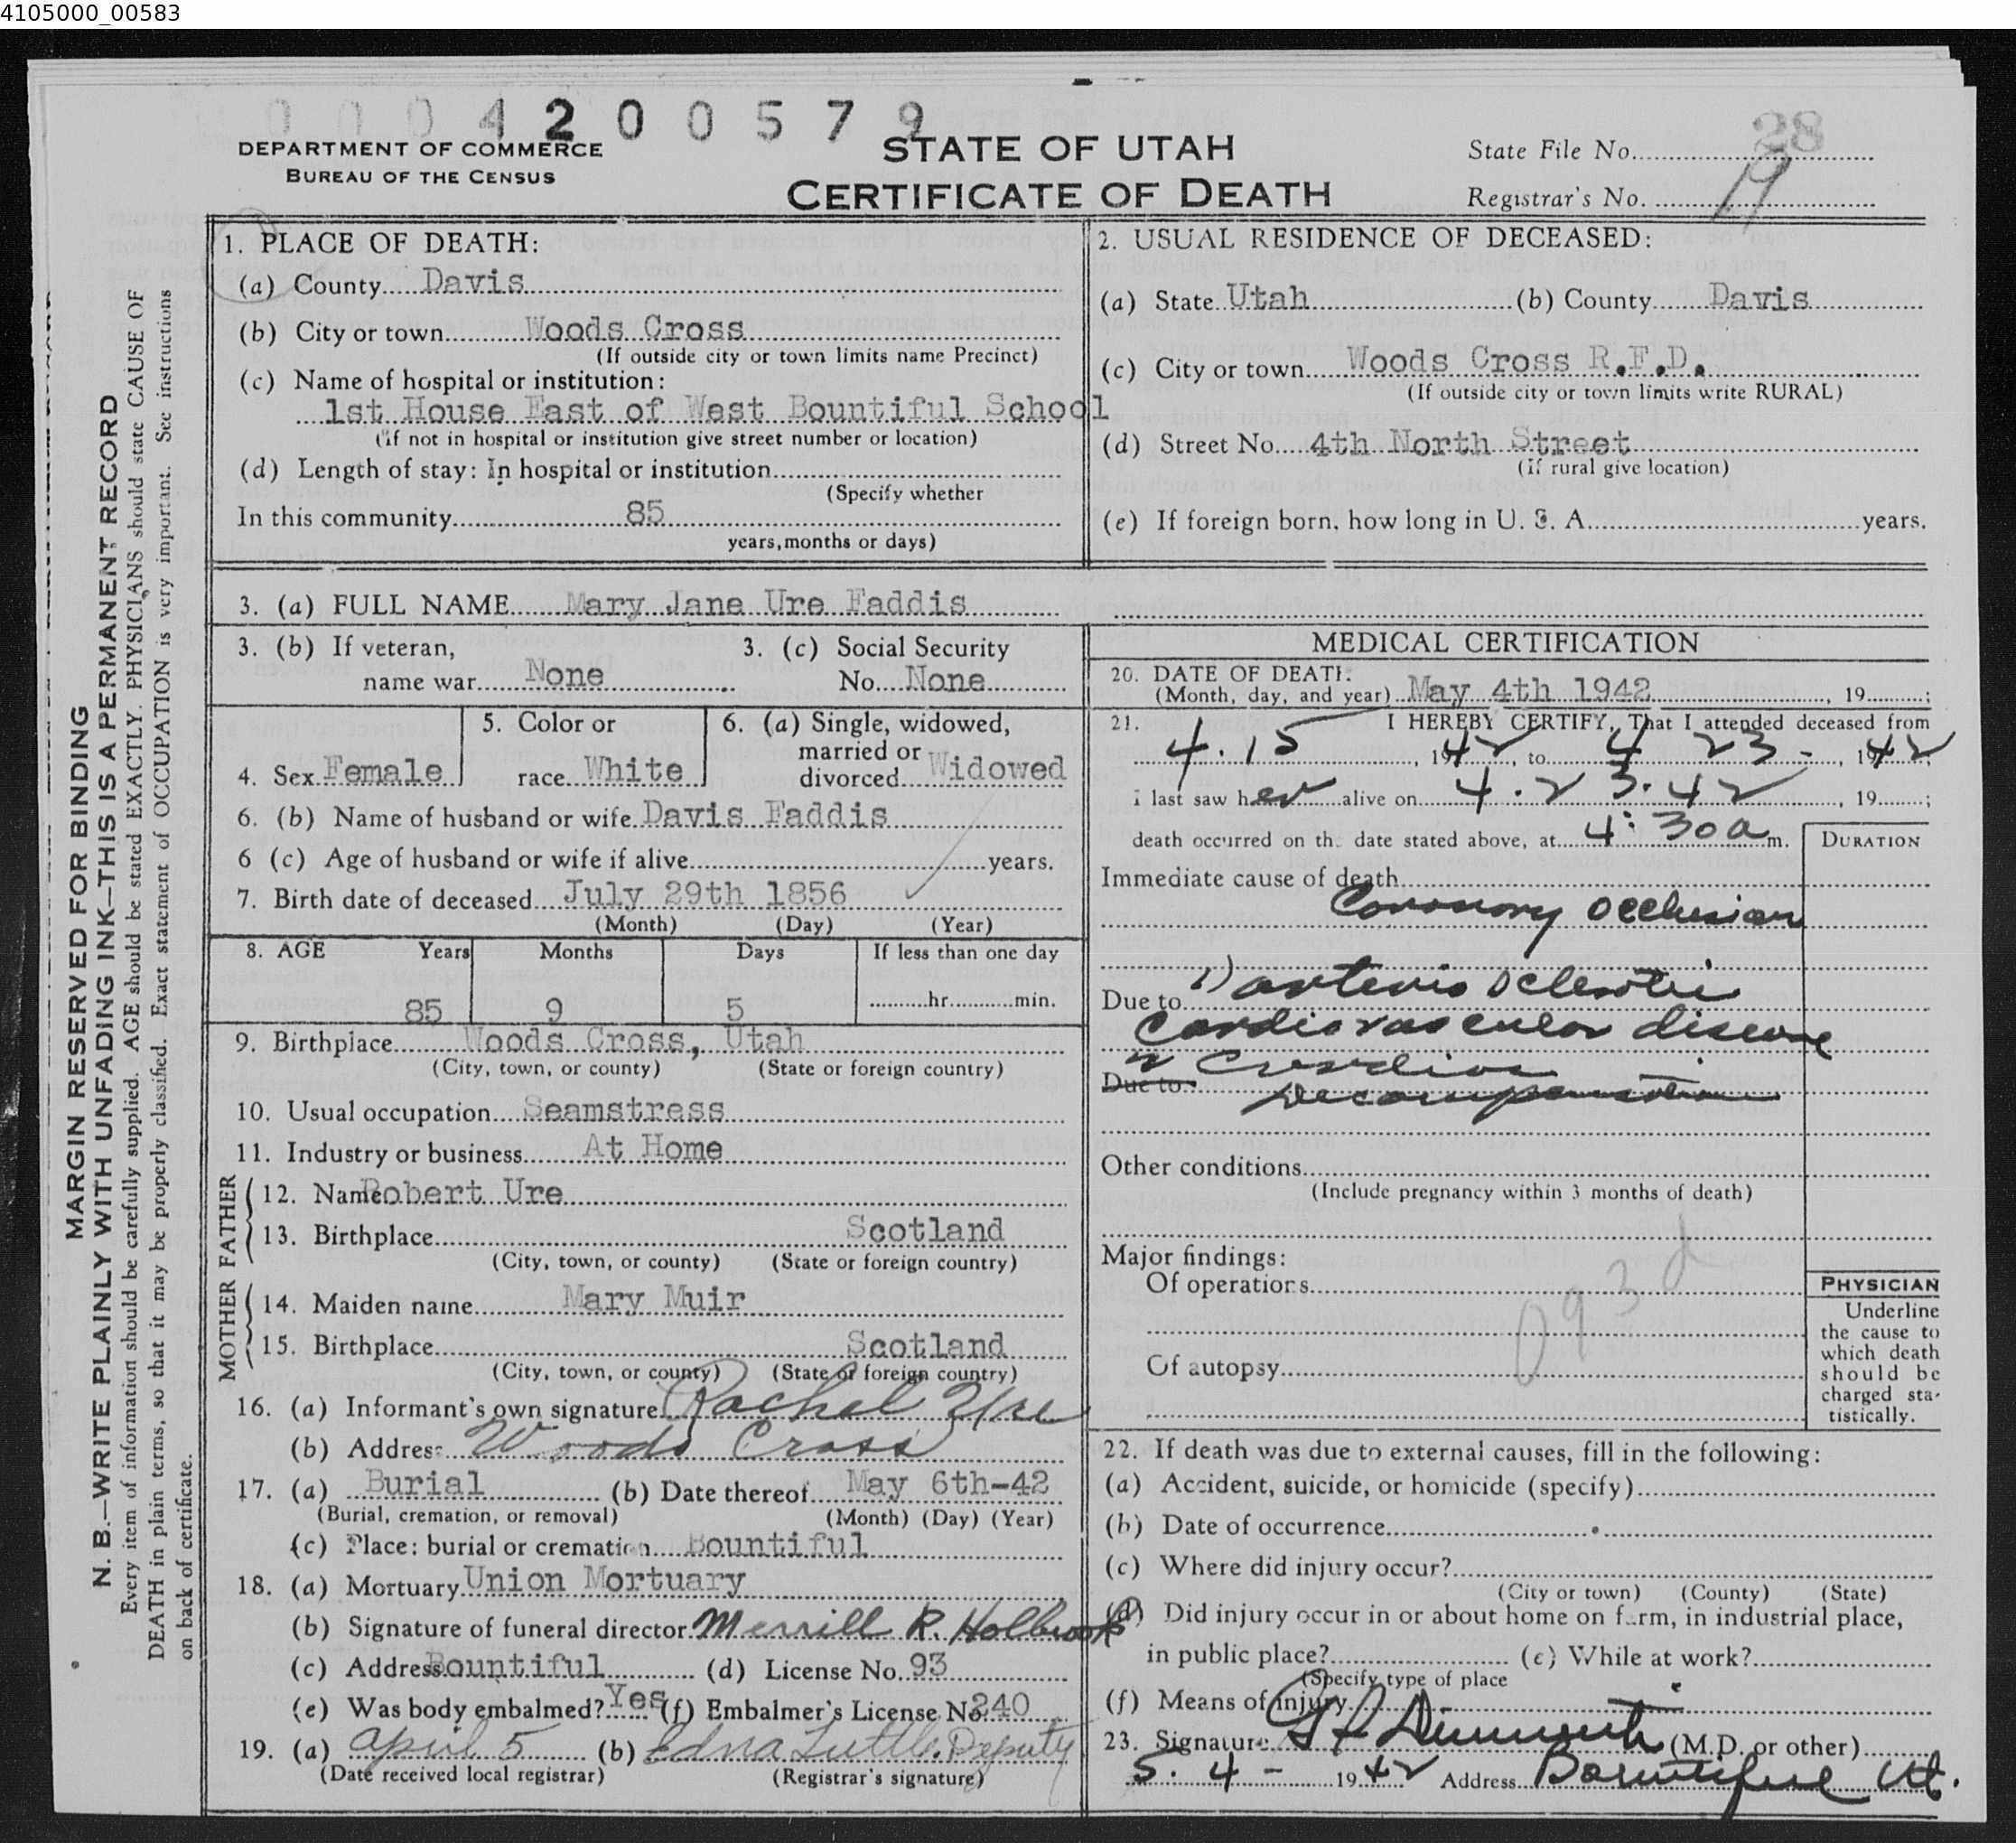 4105000_00583
0004200579
DEPARTMENT OF COMMERCE
BUREAU OF THE CENSUS
STATE OF UTAH
CERTIFICATE OF DEATH
State File No. 28
Registrar's No. 19
MARGIN RESERVED FOR BINDING
N. B.—WRITE PLAINLY WITH UNFADING INK—THIS IS A PERMANENT RECORD
Every item of information should be carefully supplied. AGE should be stated EXACTLY. PHYSICIANS should state CAUSE OF
DEATH in plain terms, so that it may be properly classified. Exact statement of OCCUPATION is very important. See instructions
on back of certificate.
1. PLACE OF DEATH:
(a) County Davis
(b) City or town Woods Cross
(If outside city or town limits name Precinct)
(c) Name of hospital or institution:
1st House East of West Bountiful School
(if not in hospital or institution give street number or location)
(d) Length of stay: In hospital or institution
(Specify whether
In this community 85
years, months or days)
2. USUAL RESIDENCE OF DECEASED:
(a) State Utah (b) County Davis
(c) City or town Woods Cross R.F.D.
(If outside city or town limits write RURAL)
(d) Street No. 4th North Street
(If rural give location)
(e) If foreign born, how long in U. S. A. years.
3. (a) FULL NAME Mary Jane Ure Faddis
3. (b) If veteran,
name war None
3. (c) Social Security
No. None
4. Sex Female
5. Color or
race White
6. (a) Single, widowed,
married or
divorced Widowed
6. (b) Name of husband or wife Davis Faddis
6 (c) Age of husband or wife if alive years.
7. Birth date of deceased July 29th 1856
(Month) (Day) (Year)
8. AGE Years Months Days If less than one day
85 9 5 hr. min.
9. Birthplace Woods Cross, Utah
(City, town, or county) (State or foreign country)
10. Usual occupation Seamstress
11. Industry or business At Home
FATHER
12. Name Robert Ure
13. Birthplace Scotland
(City, town, or county) (State or foreign country)
MOTHER
14. Maiden name Mary Muir
15. Birthplace Scotland
(City, town, or county) (State or foreign country)
16. (a) Informant's own signature Rachel Ure
(b) Address Woods Cross
17. (a) Burial (b) Date thereof May 6th-42
(Burial, cremation, or removal) (Month) (Day) (Year)
(c) Place: burial or cremation Bountiful
18. (a) Mortuary Union Mortuary
(b) Signature of funeral director Merrill R. Holbrook
(c) Address Bountiful (d) License No. 93
(e) Was body embalmed? Yes (f) Embalmer's License No. 240
19. (a) April 5 (b) Edna Tuttle. Deputy
(Date received local registrar) (Registrar's signature)
MEDICAL CERTIFICATION
20. DATE OF DEATH:
(Month, day, and year) May 4th 1942, 19 ;
21. I HEREBY CERTIFY, That I attended deceased from
4.15, 1942, to 4 23 -, 1942;
I last saw her alive on 4.23.42, 19 ;
death occurred on the date stated above, at 4:30 a m.
DURATION
Immediate cause of death
Coronory Occlusion
Due to 1) arterio Sclerotic
Cardiovascular disease
Due to: 2 Cardiac
Decompensation
Other conditions
(Include pregnancy within 3 months of death)
Major findings:
Of operations
093d
Of autopsy
PHYSICIAN
Underline
the cause to
which death
should be
charged sta-
tistically.
22. If death was due to external causes, fill in the following:
(a) Accident, suicide, or homicide (specify)
(b) Date of occurrence
(c) Where did injury occur?
(City or town) (County) (State)
(d) Did injury occur in or about home on farm, in industrial place,
in public place? (e) While at work?
(Specify type of place
(f) Means of injury
23. Signature (M.D. or other)
5. 4 - 1942 Address Bountiful Ut.